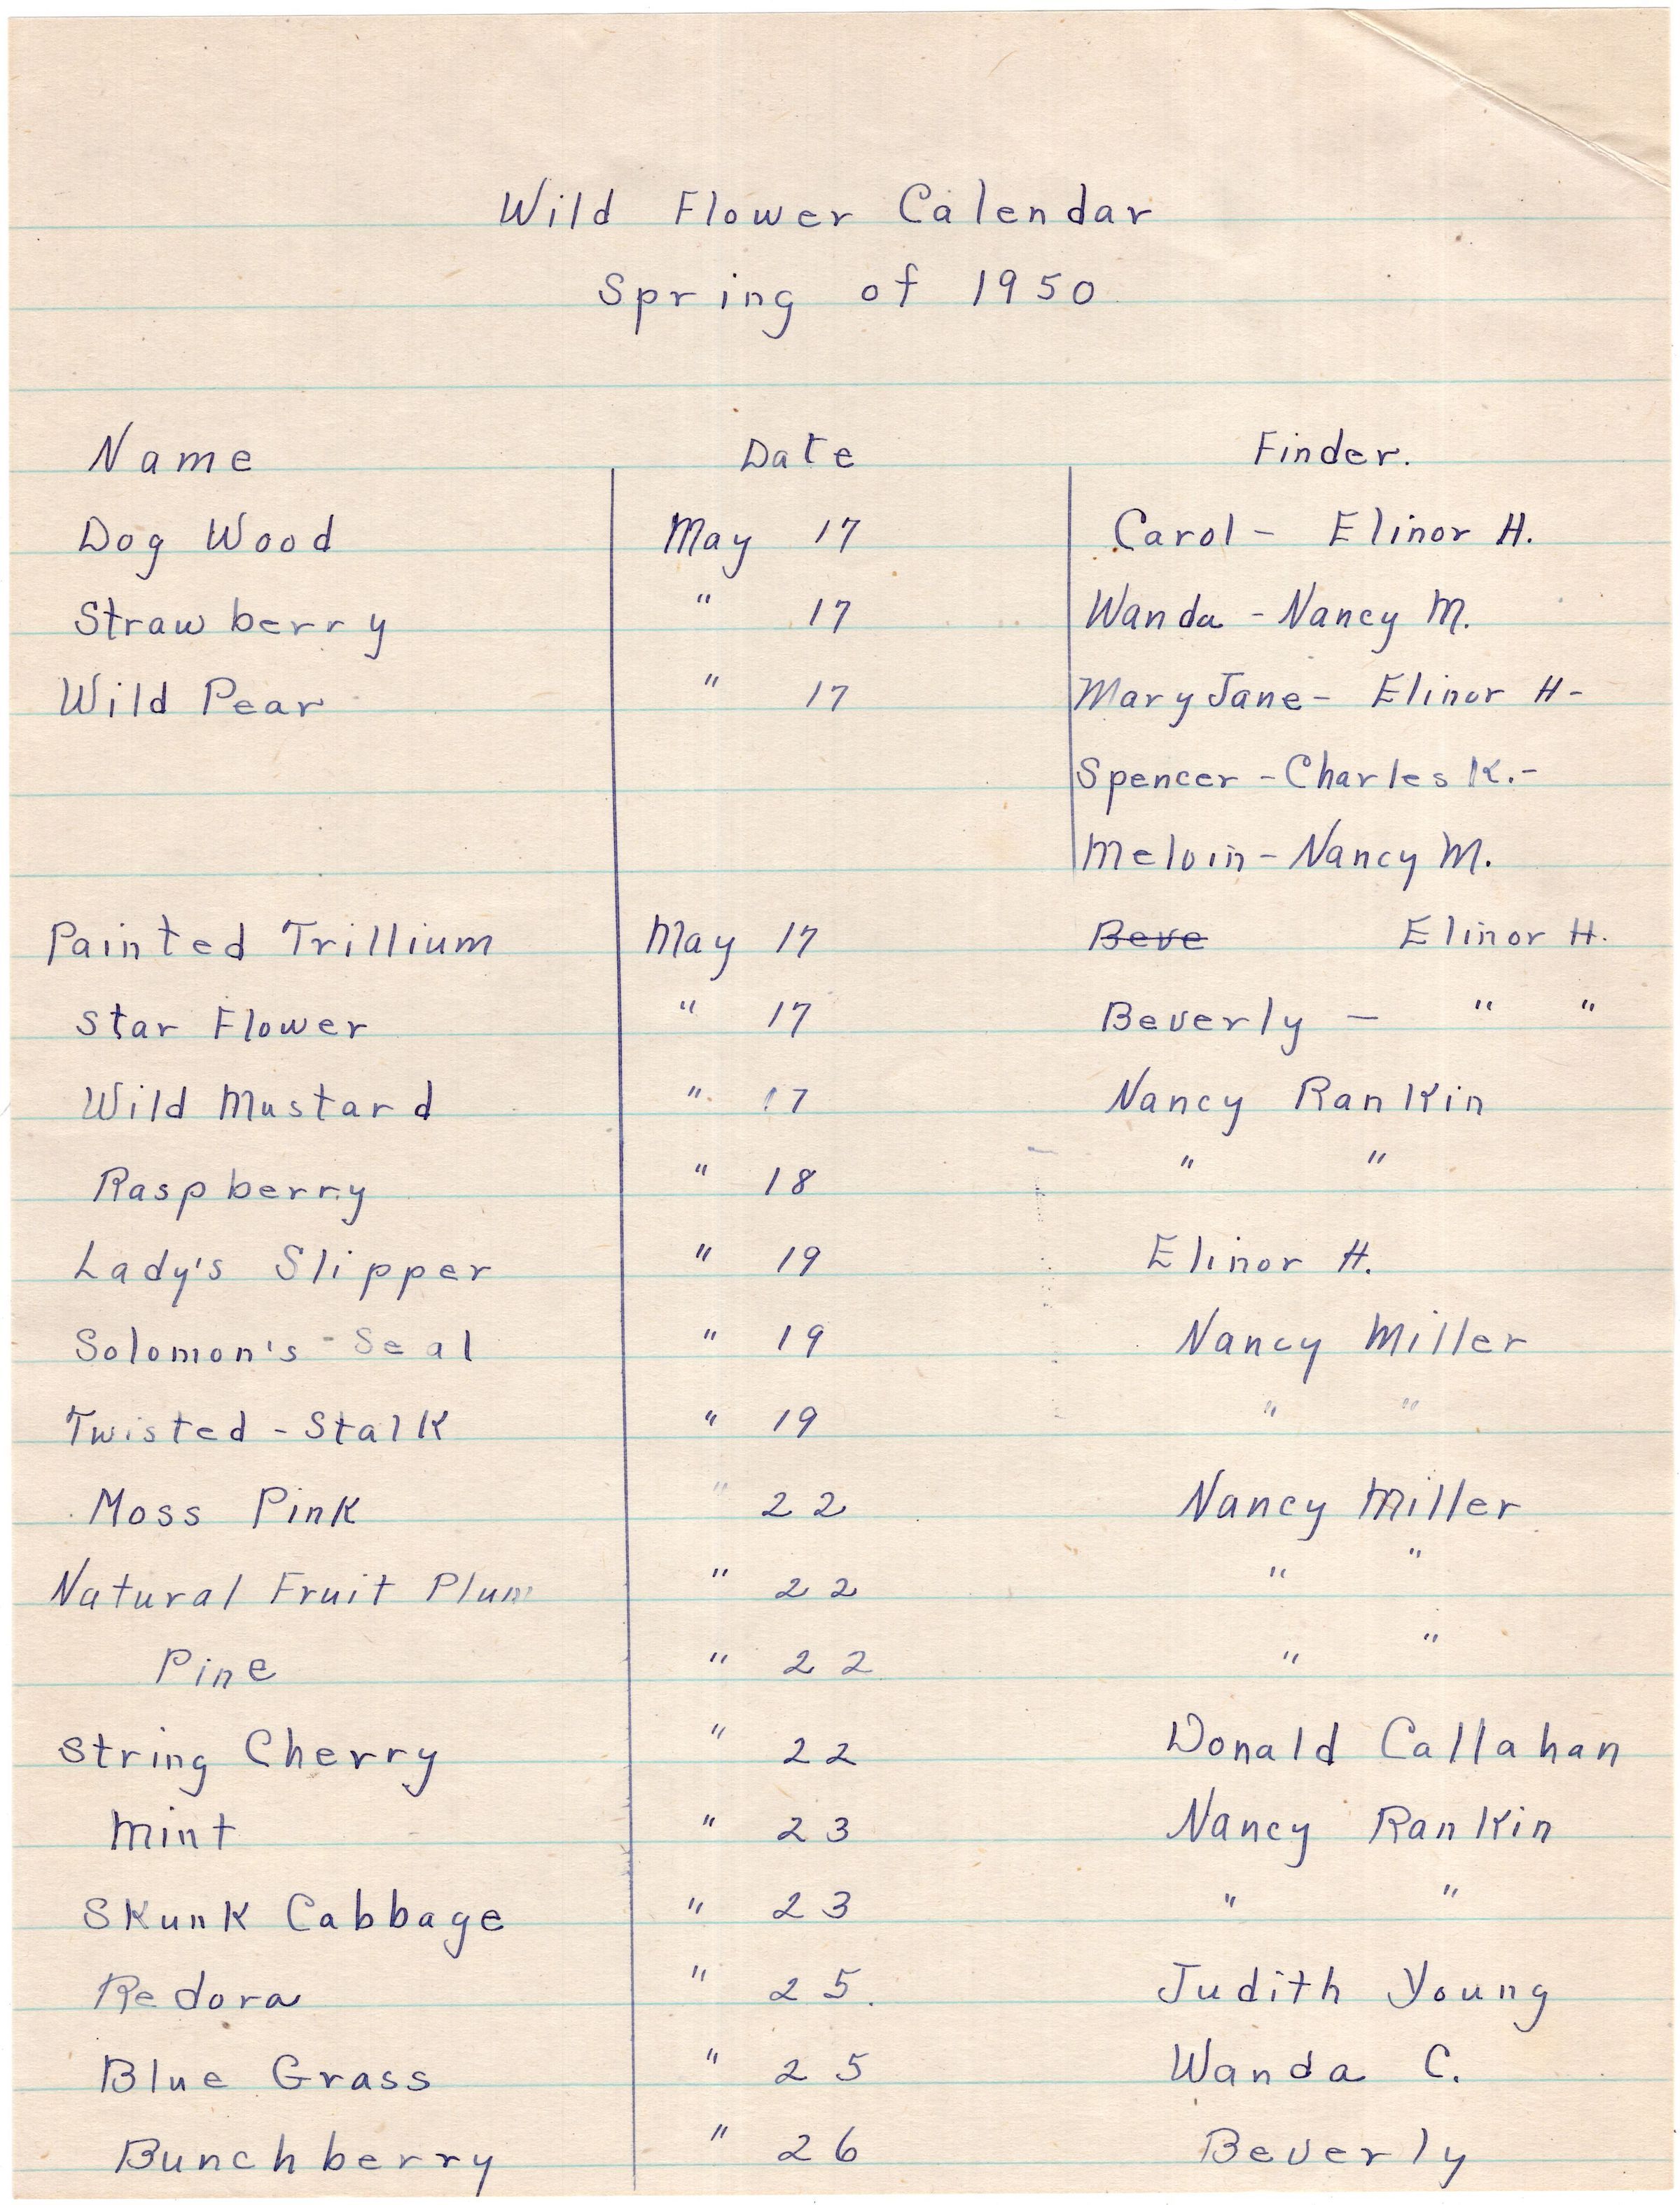 Wild Flower Calendar
Spring of 1950
Name Date Finder.
Dog Wood May 17 Carol - Elinor H.
Strawberry " 17 Wanda - Nancy M.
Wild Pear " 17 Mary Jane - Elinor H-
Spencer - Charles K.-
Melvin - Nancy M.
Painted Trillium May 17 Beve Elinor H.
Star Flower " 17 Beverly - " "
Wild Mustard " 17 Nancy Rankin
Raspberry " 18 " "
Lady's Slipper " 19 Elinor H.
Solomon's-Seal " 19 Nancy Miller
Twisted-Stalk " 19 " "
Moss Pink " 22 Nancy Miller
Natural Fruit Plum " 22 " "
Pine " 22 " "
String Cherry " 22 Donald Callahan
Mint " 23 Nancy Rankin
Skunk Cabbage " 23 " "
Redora " 25. Judith Young
Blue Grass " 25 Wanda C.
Bunchberry " 26 Beverly